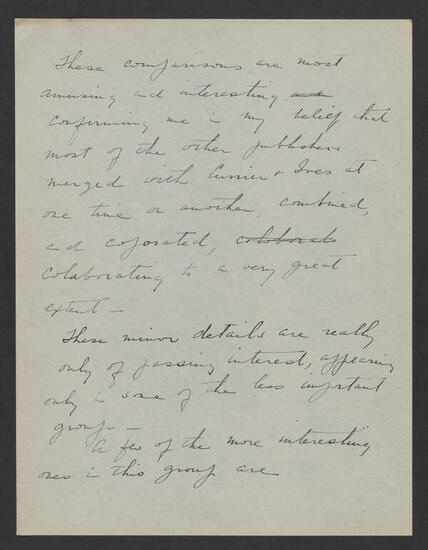 These comparisons are most
amusing and interesting and
confirming me in my belief that
most of the other publishers
merged with Currier & Ives at
one time or another, combined,
and coporated, coloborat
colaborating to a very great
extent —
These minor details are really
only of passing interest, appearing
only in some of the less important
groups —
A few of the more interesting
ones in this group are